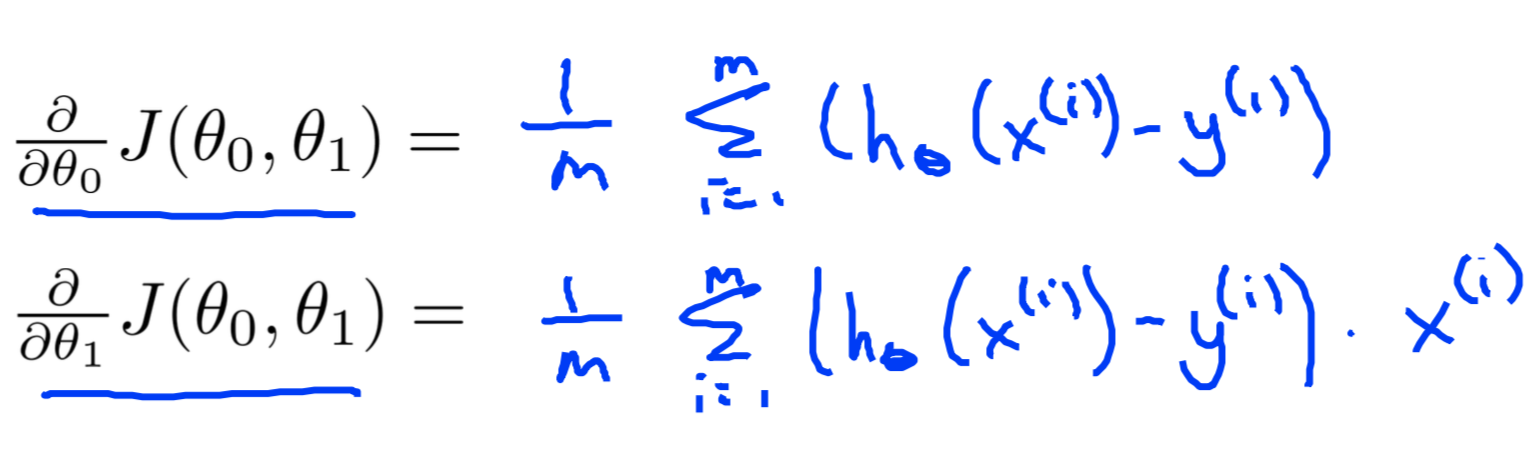 ∂/∂θ₀ J(θ₀, θ₁) = 1/m ∑_{i=1}^{m} (h_θ(x^{(i)}) - y^{(i)})
∂/∂θ₁ J(θ₀, θ₁) = 1/m ∑_{i=1}^{m} (h_θ(x^{(i)}) - y^{(i)}) · x^{(i)}